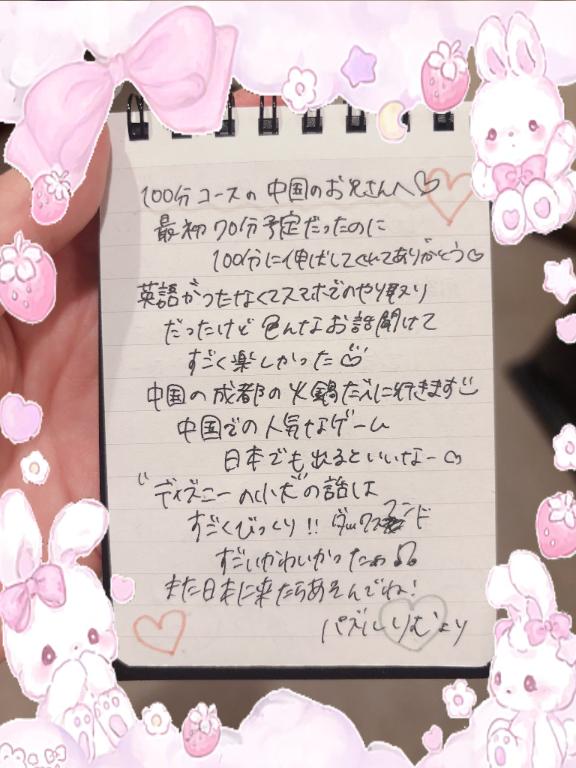 100分コースの中国のお兄さんへ♡
最初70分予定だったのに
100分に伸ばしてくれてありがとう♡
英語がつたなくてスマホでのやり取り
だったけど色んなお話聞けて
すごく楽しかった
中国の成都の火鍋だべに行きます
中国での人気なゲーム
日本でも出るといいなー♡
"ディズニーの小犬"の話は
すごくびっくり!! ダックスフンド
すごいかわいかったぁ♫
また日本に来たらあそんでね!
パズル りむより